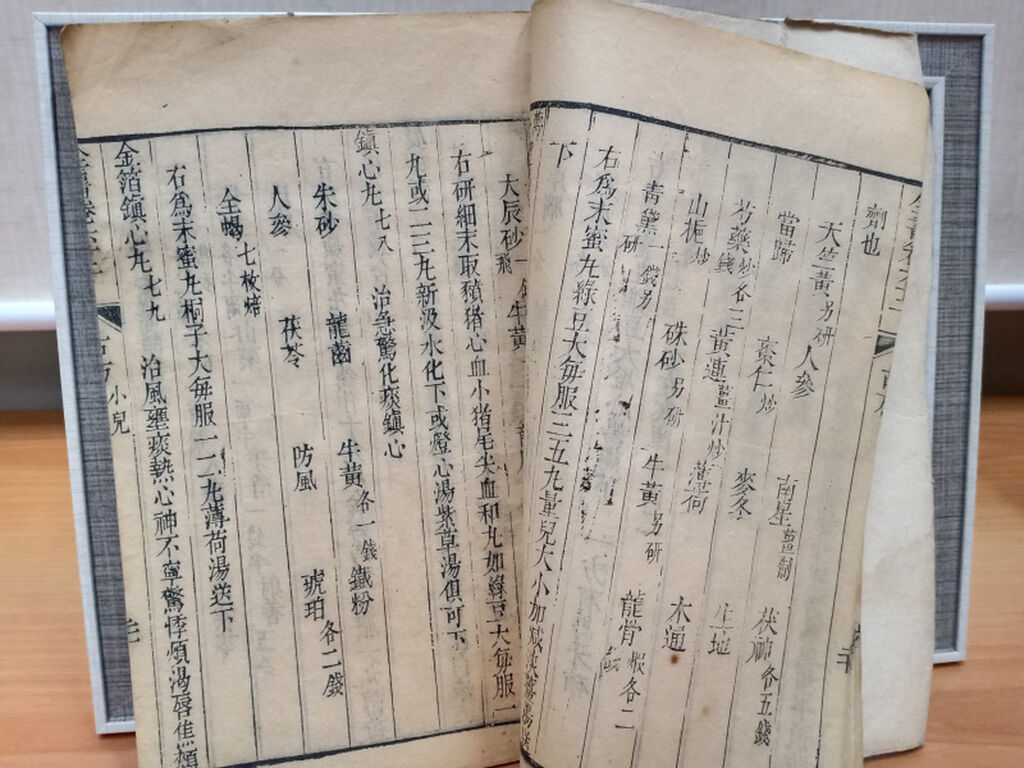 劑也
天竺黃另研 人參
當歸 棗仁炒 南星薑制 茯神各五錢
芍藥炒各三錢 黃連薑汁炒 麥冬
山梔炒 硃砂另研 薄荷 生地
青黛一錢另研 牛黃另研 木通 龍骨煅各二錢
右為末蜜丸綠豆大每服三五九量兒大小加減
下
大辰砂一錢飛 牛黃一
右研細末取豶猪心血小猪尾尖血和丸如綠豆大每服一
丸或二三丸新汲水化下或燈心湯紫草湯俱可下
鎮心丸七八 治急驚化痰鎮心
朱砂 龍齒 牛黃各一錢 鐵粉
人參 茯苓 防風 琥珀各二錢
全蝎七枚焙
右為末蜜丸桐子大每服一二丸薄荷湯送下
金箔鎮心丸七九 治風壅痰熱心神不寧驚悸煩渴唇焦頰
小兒